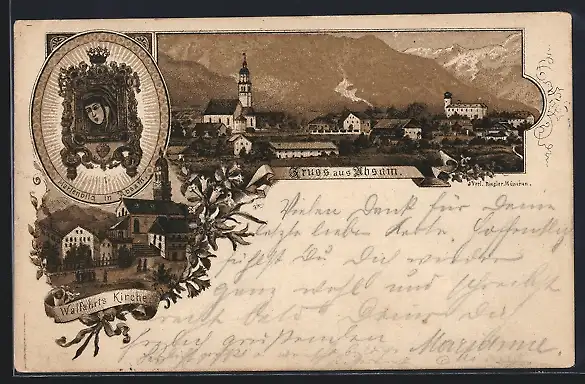 Gnadenbild in Absam.
Gruss aus Absam.
Verl. Riegler München.
Walfahrts Kirche
Vielen Dank für Deine
letzte liebe Karte. Hoffentlich
fühlst Du Dich wieder
ganz wohl und schreibst
recht bald Deine Dich
herzlich grüßenden
Marianne